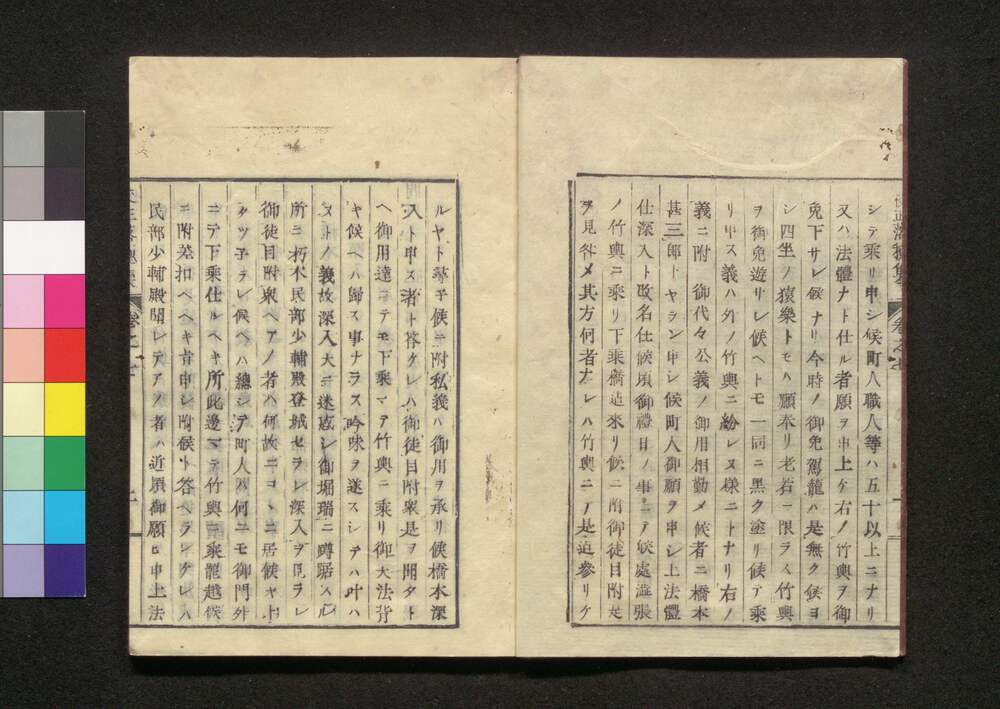 シテ乘リ申シ候町人職人等ハ五十以上ニナリ
又ハ法體ナト仕ル者願ヲ申上ケ右ノ竹輿ヲ御
免下サレ候ナリ今時ノ御免駕籠ハ是無ク候ヨ
シ四坐ノ猿樂トモハ願奉リ老若ニ限ラス竹輿
ヲ御免遊サレ候ヘトモ一同ニ黒ク塗リ候テ乘
リ申ス義ハ外ノ竹輿ニ紛レヌ樣ニトナリ右ノ
義ニ附御代々公義ノ御用相勤メ候者ニ橋本
甚三郎トヤラン申シ候町人御願ヲ申シ上法體
仕深入ト改名仕候頃御禮日ノ事ニテ候處澁張
ノ竹輿ニ乘リ下乘橋迠來リ候ニ附御徒目附是
ヲ見咎メ其方何者ナレハ竹輿ニテ是迠參リケ
ルヤト尋子候ニ附私義ハ御用ヲ承リ候橋本深
入ト申ス者ト答ケレハ御徒目附衆是ヲ聞タト
ヘ御用達ニテモ下乘マテ竹輿ニ乘リ御大法背
キ候ヘハ歸ス事ナラス吟味ヲ遂スシテハ叶ハ
ヌトノ義故深入大ニ迷惑シ御堀端ニ蹲踞スル
所ニ朽木民部少輔殿登城セラレ深入ヲ見ラレ
御徒目附衆ヘアノ者ハ何故ニコヽニ居候ヤト
タツ子ラレ候ヘハ總シテ町人ハ何ニモ御門外
ニテ下乘仕ルヘキ所此邊マテ竹輿ニ乘籠越候
ニ附差扣ヘヘキ旨申シ附候ト答ヘラレケレハ
民部少輔殿聞レテアノ者ハ近頃御願ヒ申上法